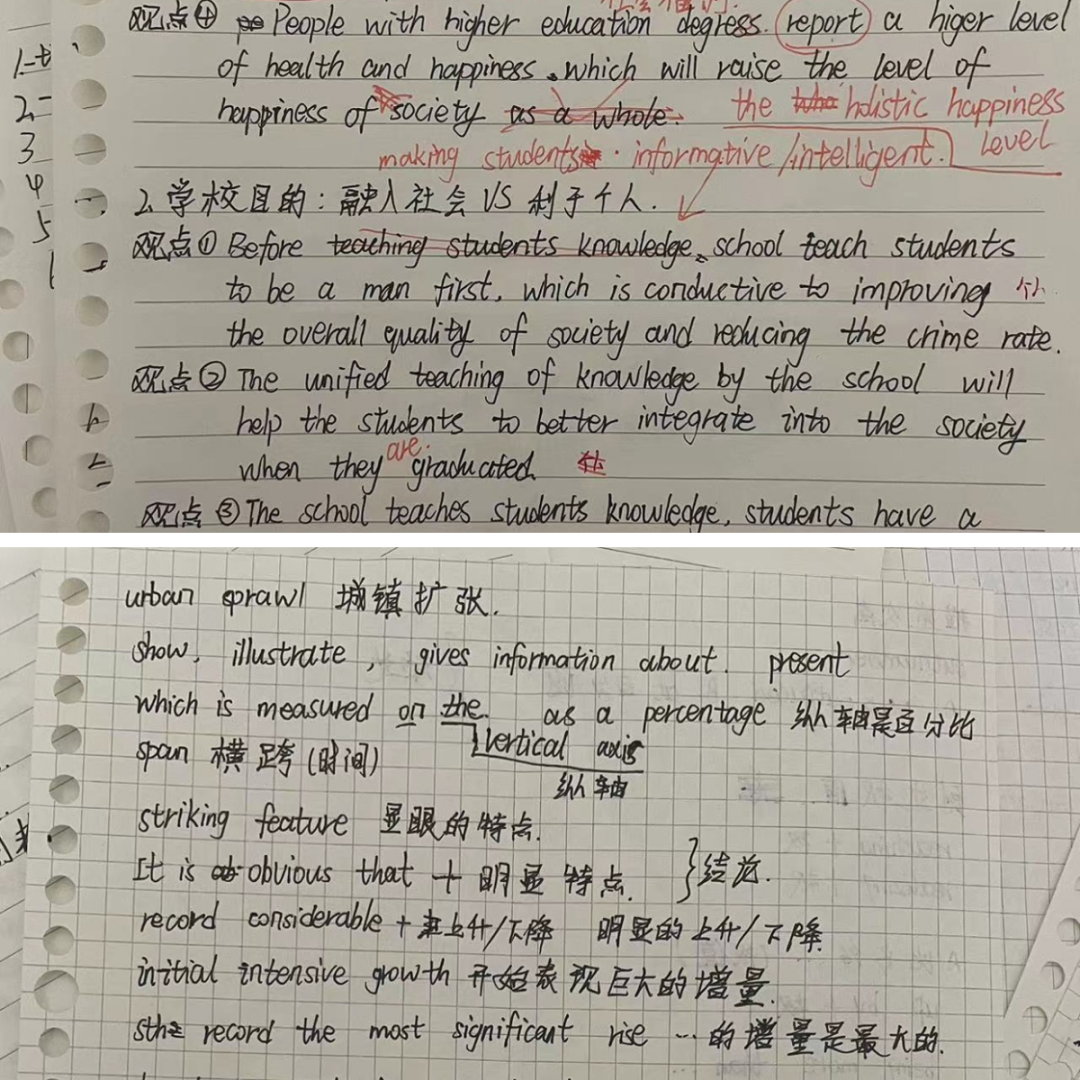 1.
2.
3
4
5
观点④ People with higher education degress. report a higer level
of health and happiness, which will raise the level of
happiness of society as a whole. the holistic happiness
making students informative/intelligent. level
2. 学校目的：融入社会 VS 利于个人.
观点① Before teaching students knowledge, school teach students
to be a man first, which is conductive to improving 个
the overall quality of society and reducing the crime rate.
观点② The unified teaching of knowledge by the school will
help the students to better integrate into the society
when they are graduated. 社
观点③ The school teaches students knowledge, students have a
urban sprawl 城镇扩张.
show, illustrate, gives information about. present
which is measured on the. as a percentage 纵轴是百分比
vertical axis
span 横跨(时间)
纵轴
striking feature 显眼的特点.
It is obvious that + 明显特点. }结论.
record considerable + 上升/下降 明显的上升/下降.
initial intensive growth 开始表现巨大的增量.
sth record the most significant rise …的增量是最大的.